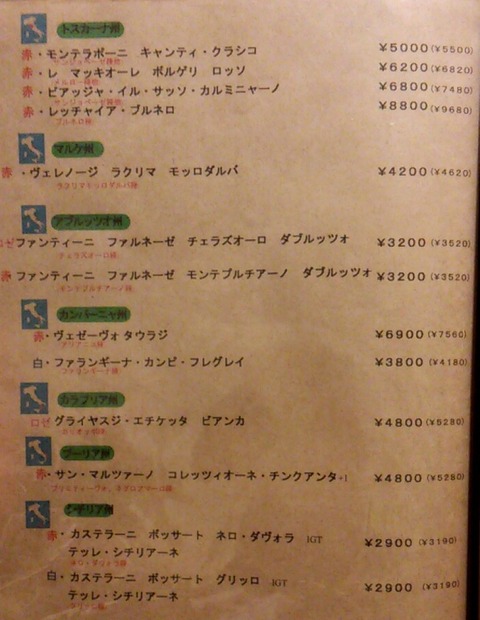 トスカーナ州
赤・モンテラポーニ　キャンティ・クラシコ　¥5000(¥5500)
サンジョベーゼ種他
赤・レ　マッキオーレ　ボルゲリ　ロッソ　¥6200(¥6820)
メルロー種他
赤・ピアッジャ・イル・サッソ・カルミニャーノ　¥6800(¥7480)
サンジョベーゼ種他
赤・レッチャイア・ブルネロ　¥8800(¥9680)
ブルネロ種
マルケ州
赤・ヴェレノージ　ラクリマ　モッロダルバ　¥4200(¥4620)
ラクリマモッロダルバ種
アブルッツオ州
ロゼファンティーニ　ファルネーゼ　チェラズオーロ　ダブルッツォ　¥3200(¥3520)
チェラズオーロ種
赤　ファンティーニ　ファルネーゼ　モンテプルチアーノ　ダブルッツォ　¥3200(¥3520)
モンテプルチアーノ種
カンパーニャ州
赤・ヴェゼーヴォ タウラジ　¥6900(¥7560)
アリアニコ種
白・ファランギーナ・カンピ・フレグレイ　¥3800(¥4180)
ファランギーナ種
カラブリア州
ロゼ グライヤスジ・エチケッタ　ビアンカ　¥4800(¥5280)
プーリア州
赤・サン・マルツァーノ　コレッツィオーネ・チンクアンタ+1　¥4800(¥5280)
プリミティーヴォ、ネグロアマーロ種
シチリア州
赤・カステラーニ　ポッサート　ネロ・ダヴォラ　IGT
テッレ・シチリアーネ　¥2900(¥3190)
ネロ・ダヴォラ種
白・カステラーニ　ポッサート　グリッロ　IGT
テッレ・シチリアーネ　¥2900(¥3190)
グリッロ種